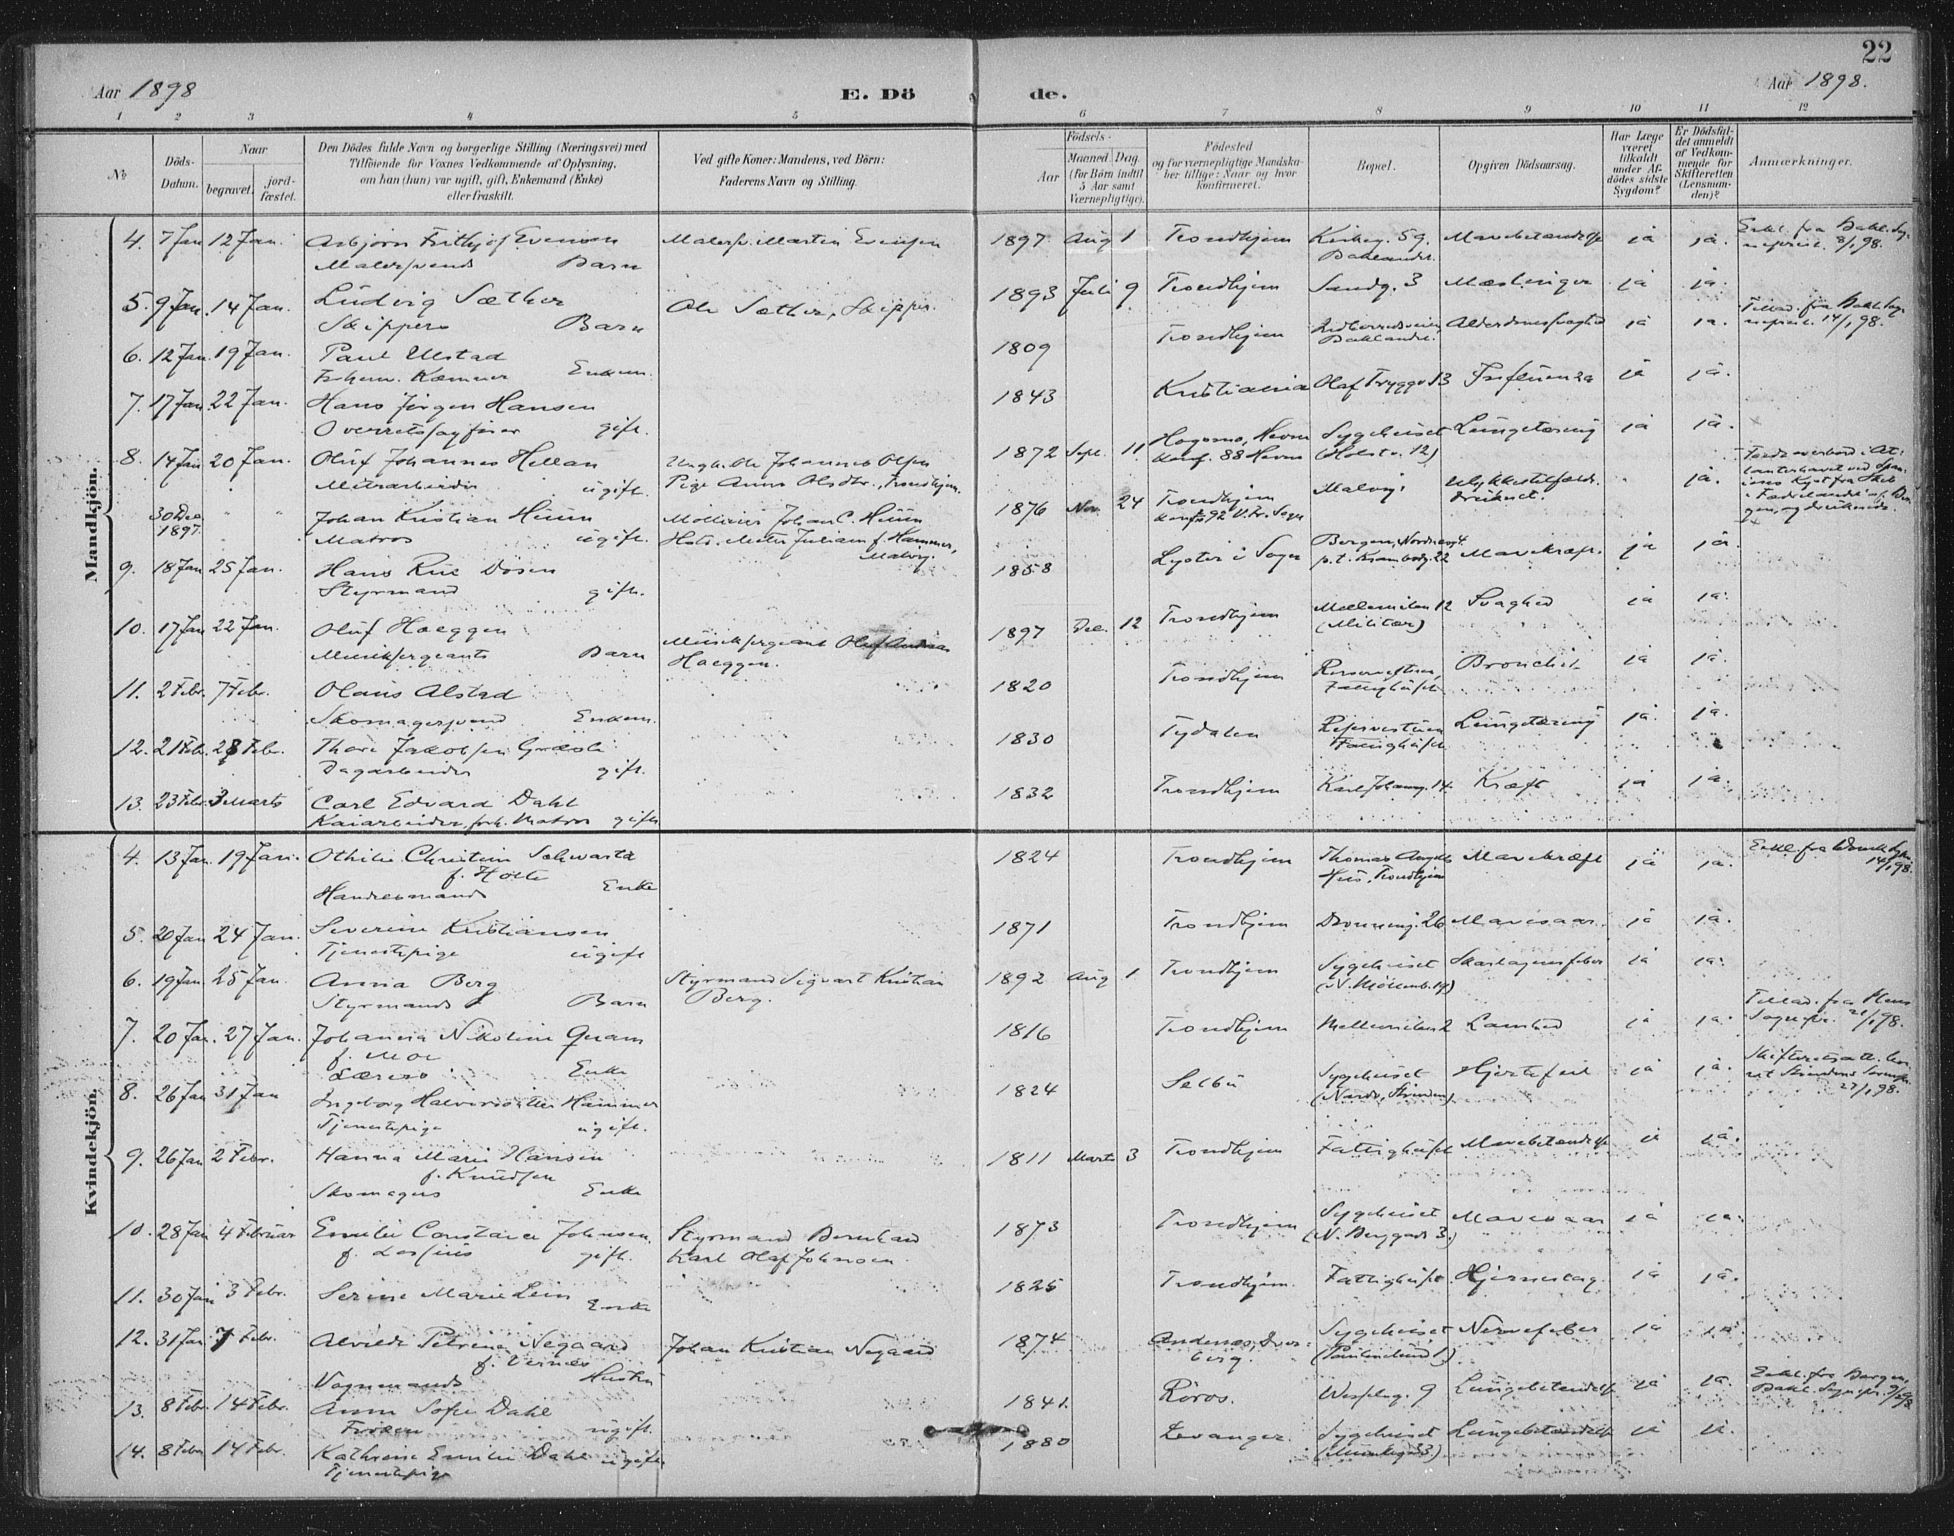 22
Aar 1898
E. Dö
de.
Aar 1898.
1 2 3 4 5 6 7 8 9 10 11 12
No
Döds-
Datum.
Naar
begravet.
jord-
fæstet.
Den Dödes fulde Navn og borgerlige Stilling (Næringsvei) med
Tilföiende for Voxnes Vedkommende af Oplysning,
om han (hun) var ugift, gift, Enkemand (Enke)
eller fraskilt.
Ved gifte Koner: Mandens, ved Börn:
Faderens Navn og Stilling.
Födsels-
Aar
Maaned Dag
(for Börn indtil
5 Aar samt
Værnepligtige).
Födested
og for værnepligtige Mandska-
ber tillige: Naar og hvor
konfirmeret.
Bopæl.
Opgiven Dödsaarsag.
Har Læge
været
tilkaldt
under Af-
dödes sidste
Sygdom?
Er Dödsfal-
det anmeldt
af Vedkom-
mende for
Skifteretten
(Lensman-
den)?
Anmærkninger.
Mandkjön.
4. 7 Jan 12 Jan. Asbjørn Frithjof Evensen Malersv. Martin Evensen 1897 Aug 1 Trondhjem Kirkeg. 59. Mavebetændelse ja ja. Erkl. fra Bakl. Sog-
Malersvends Barn Baklandet. nepræst. 8/1 98.
5. 9 Jan. 14 Jan. Ludvig Sæther Ole Sæther, Skipper. 1893 Juli 9. Trondhjem Sandg. 3 Mæslinger ja ja.
Skippers Barn
6. 12 Jan. 19 Jan. Paul Ulstad 1809 Trondhjem Baklandet. Alderdomssvaghed ja ja. Tillad. fra Bakl. Sog-
Enkem. nepræst. 14/1 98.
7. 17 Jan. 22 Jan. Hans Jørgen Hansen 1843 Kristiania Olaf Tryggv. 13 Influenza ja ja.
Overretssagfører gift.
8. 14 Jan 20 Jan. Oluf Johannes Hellan Ungk. Ole Johannes Olsen 1872 Sept. 11. Hevne Sygehuset Lungetæring ja ja.
Murarbeider ugift. Pige Anne Olsdtr., Trondhjem. Konf. 88 Hevne
30 Dec. " " Johan Kristian Huun Møllerer Johan C. Huun 1876 Nov. 24 Trondhjem Malvig Ulykkestilfælde. " ja.
1897. Matros ugift. Malvig. druknet.
9. 18 Jan 25 Jan. Hans Dosen 1858 Lyster i Sogn Bergen, Nordnesg. 4. Mavekræft. ja ja.
Styrmand gift. p.t. Krambodg. 22
10. 17 Jan 22 Jan. Oluf Hoeggen Musiksergeant Oluf Andreas 1897 Dec. 12 Trondhjem Møllemilen 12 Svaghed ja ja.
Musiksergeants Barn Hoeggen. (Militær)
11. 2 Febr. 7 Febr. Olaus Alstad 1820 Trondhjem Bronchit ja ja.
Skomagersvend Enkem.
12. 21 Febr. 28 Febr. Thore Jakobsen 1830 Tydalen Lungetæring ja ja.
Dagarbeider gift.
13. 23 Febr. 3 Marts Carl Edvard Dahl 1832 Trondhjem Karl Johansg. 14. Kræft ja ja.
Kaiarbeider, forh. Matros gift.
Kvindekjön.
4. 13 Jan. 19 Jan. Othilie Christine Schwartz 1824 Trondhjem Thomas Angells Mavekræft ja ja. 14/1 98.
f. Holte Hus, Trondhjem
Handelsmands Enke
5. 20 Jan 24 Jan. Severine Kristiansen 1871 Trondhjem Dronning. 26 Mavesaar. ja ja.
Tjenestepige ugift
6. 19 Jan. 25 Jan. Anna Berg Styrmand Sigvart Kristian 1892 Aug 1 Trondhjem Sygehuset Skarlagensfeber ja ja.
Styrmands Barn Berg. (N. Møllenb. 14)
7. 20 Jan. 27 Jan. Johanna Nikoline Quam 1816 Trondhjem Mellemilen 2 Lamhed ja ja. Tillad. fra
f. Moe Sognepr. 21/1 98.
Lærers Enke
8. 26 Jan 31 Jan Ingeborg Halvorsdatter Hammer 1824 Selbu Sygehuset Hjertefeil ja ja. Skifteretsatt.
Tjenestepige ugift. (Nardo, Strinden) 27/1 98.
9. 26 Jan 2 Febr. Hanna Marie Hansen 1811 Marts 3 Trondhjem Fattighuset Mavebetændelse ja ja.
f. Knudsen
Skomagers Enke
10. 28 Jan 4 Februar Emilie Constance Johnsen. Styrmand Bernhard 1873 Trondhjem Sygehuset Mavesaar ja ja.
f. Lossius gift. Karl Olaf Johnsen (N. Berggade 3)
11. 30 Jan 3 Febr. Serine Marie Lein Enke 1825 Trondhjem. Fattighuset Hjerneslag ja ja.
12. 31 Jan. 7 Febr. Alvilde Petrine Negaard Johan Kristian Negaard 1874 Andenæs, Dver- Sygehuset Nervefeber ja ja
f. Vernes berg.
Vognmands Hustru
13. 8 Febr. 14 Febr. Anne Sofie Dahl 1841. Röros. Weseleg. 9 Lungebetændelse ja ja.
Frøken ugift.
14. 8 Febr 14 Febr. Kathrine Emilie Dahl ugift 1880 Levanger. Sygehuset Lungebetændelse ja ja.
Tjenestepige